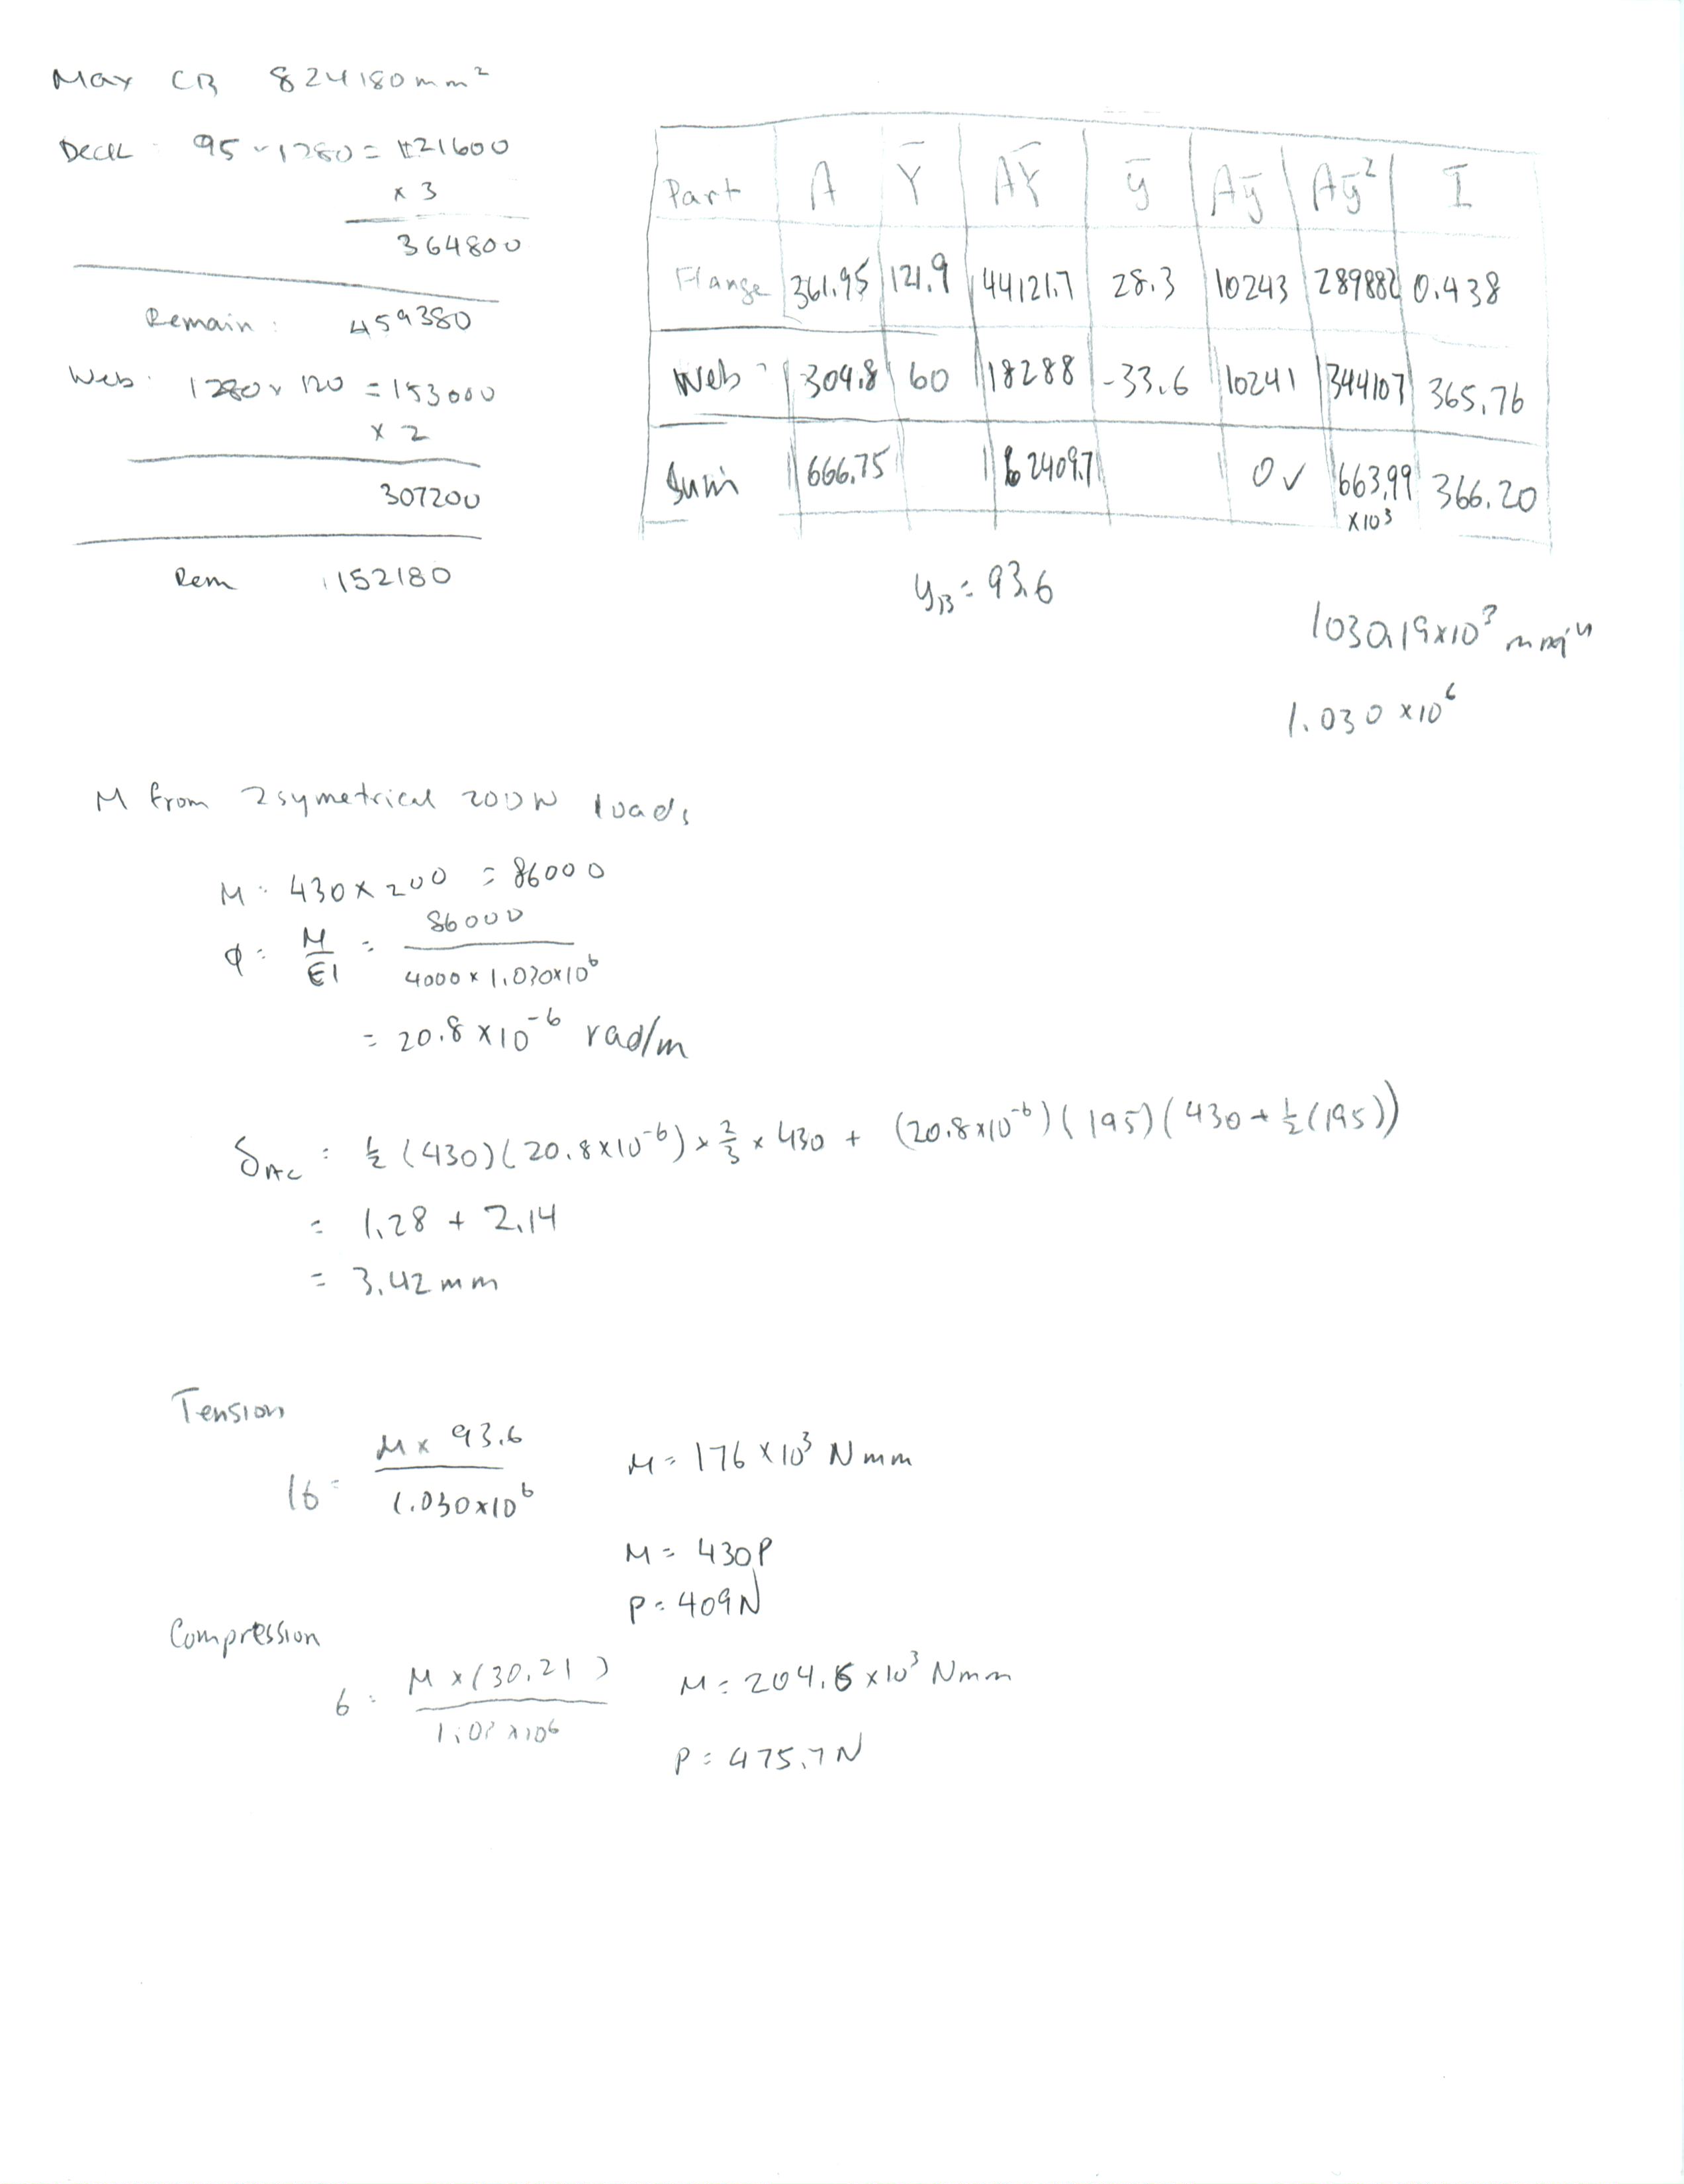 Max CB 824180mm²
Deck 95 × 1280 = 121600
× 3
364800
Remain: 459380
Web: 1280 × 120 = 153000
× 2
307200
Rem 152180
Part A Ȳ AȲ ȳ Aȳ Aȳ² I
Flange 361.95 121.9 44121.7 28.3 10243 289882 0.438
Web 304.8 60 18288 -33.6 10241 344107 365.76
Sum 666.75 62409.7 0✓ 663.99 ×10³ 366.20
y_B = 93.6
1030.19×10³ mm⁴
1.030 ×10⁶
M from 2 symetrical 200N loads
M = 430 × 200 = 86000
φ = M/EI = 86000 / 4000 × 1.030×10⁶
= 20.8 ×10⁻⁶ rad/m
δ_AC = ½ (430)(20.8×10⁻⁶) × ⅔ × 430 + (20.8×10⁻⁶)(195)(430 + ½(195))
= 1.28 + 2.14
= 3.42 mm
Tension
16 = M × 93.6 / 1.030×10⁶ M = 176 ×10³ Nmm
M = 430P
P = 409N
Compression
6 = M × (30.21) / 1.03 ×10⁶ M = 204.6 ×10³ Nmm
P = 475.7N